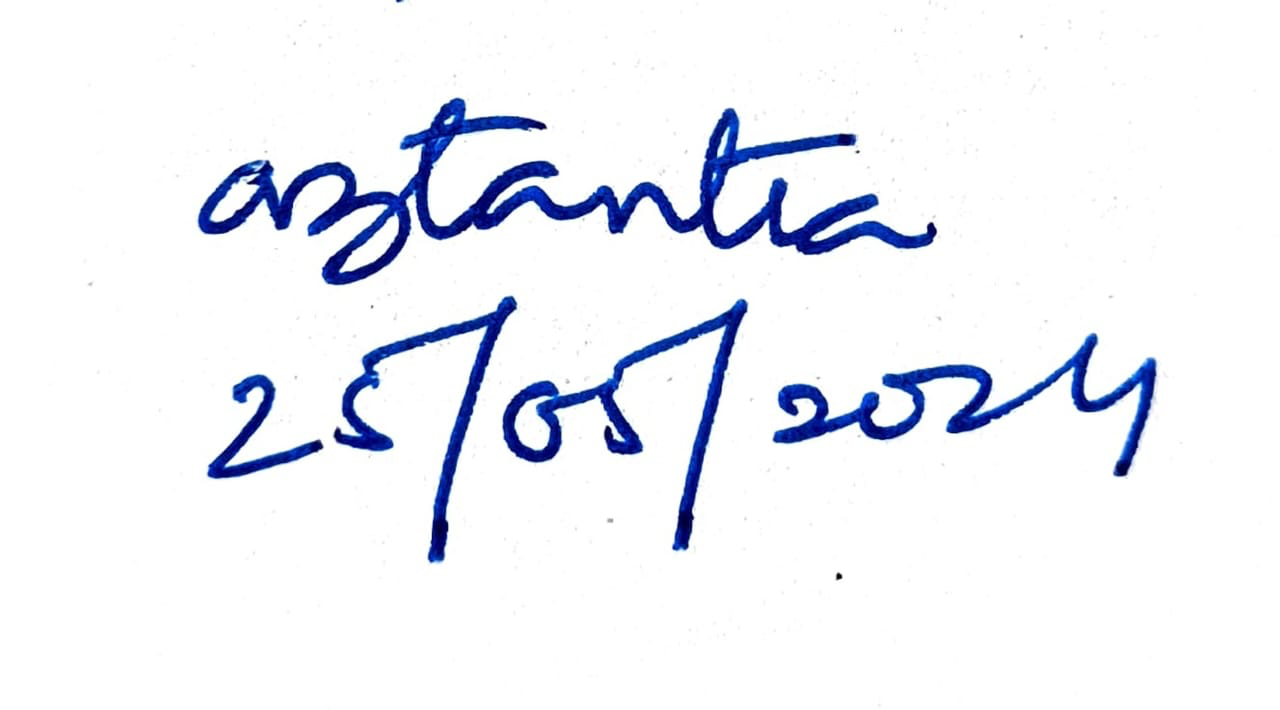 aztantra
25/05/2024